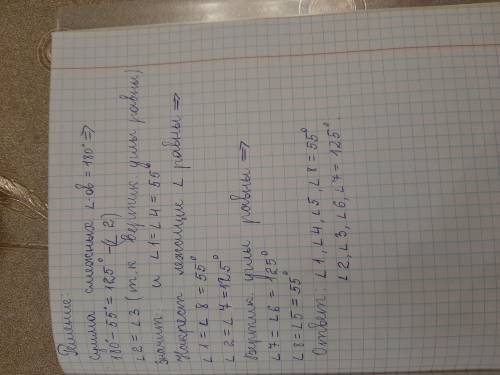 Решение:
Сумма смежных ∠-ов = 180° =>
180° - 55° = 125° - (∠2)
∠2 = ∠3 (т.к вертик. углы равны)
Значит и ∠1 = ∠4 = 55°
Накрест лежащие ∠ равны =>
∠1 = ∠8 = 55°
∠2 = ∠7 = 125°
Вертик углы равны =>
∠7 = ∠6 = 125°
∠8 = ∠5 = 55°
Ответ: ∠1, ∠4, ∠5, ∠8 = 55°
∠2, ∠3, ∠6, ∠7 = 125°.